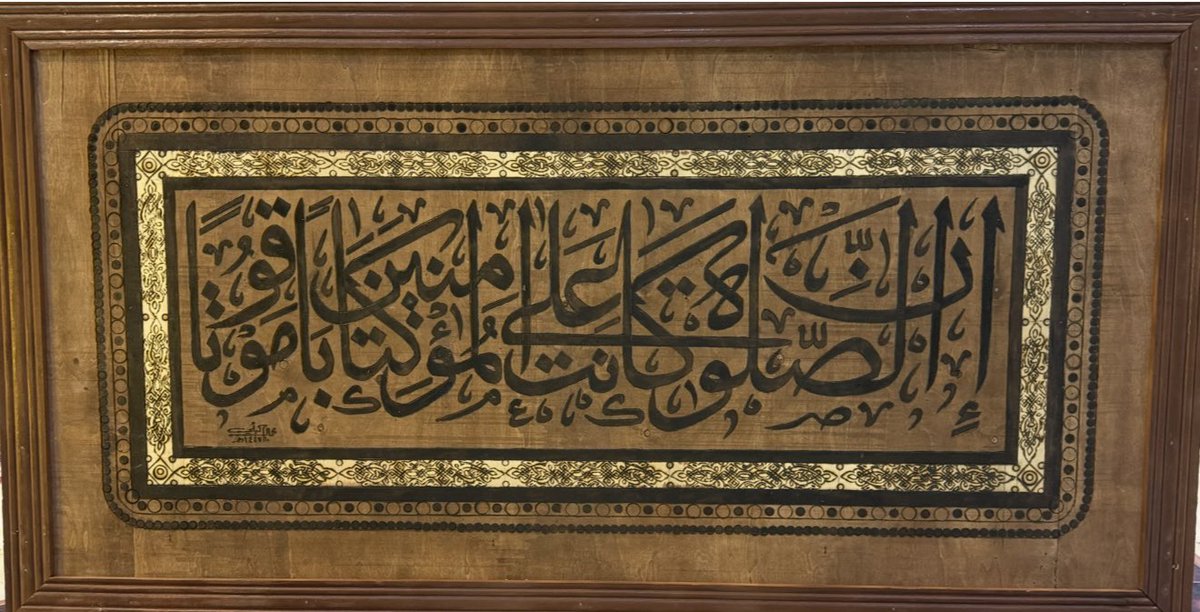 إنّ الصّلوة كانت على المؤمنين كتابًا موقوتًا